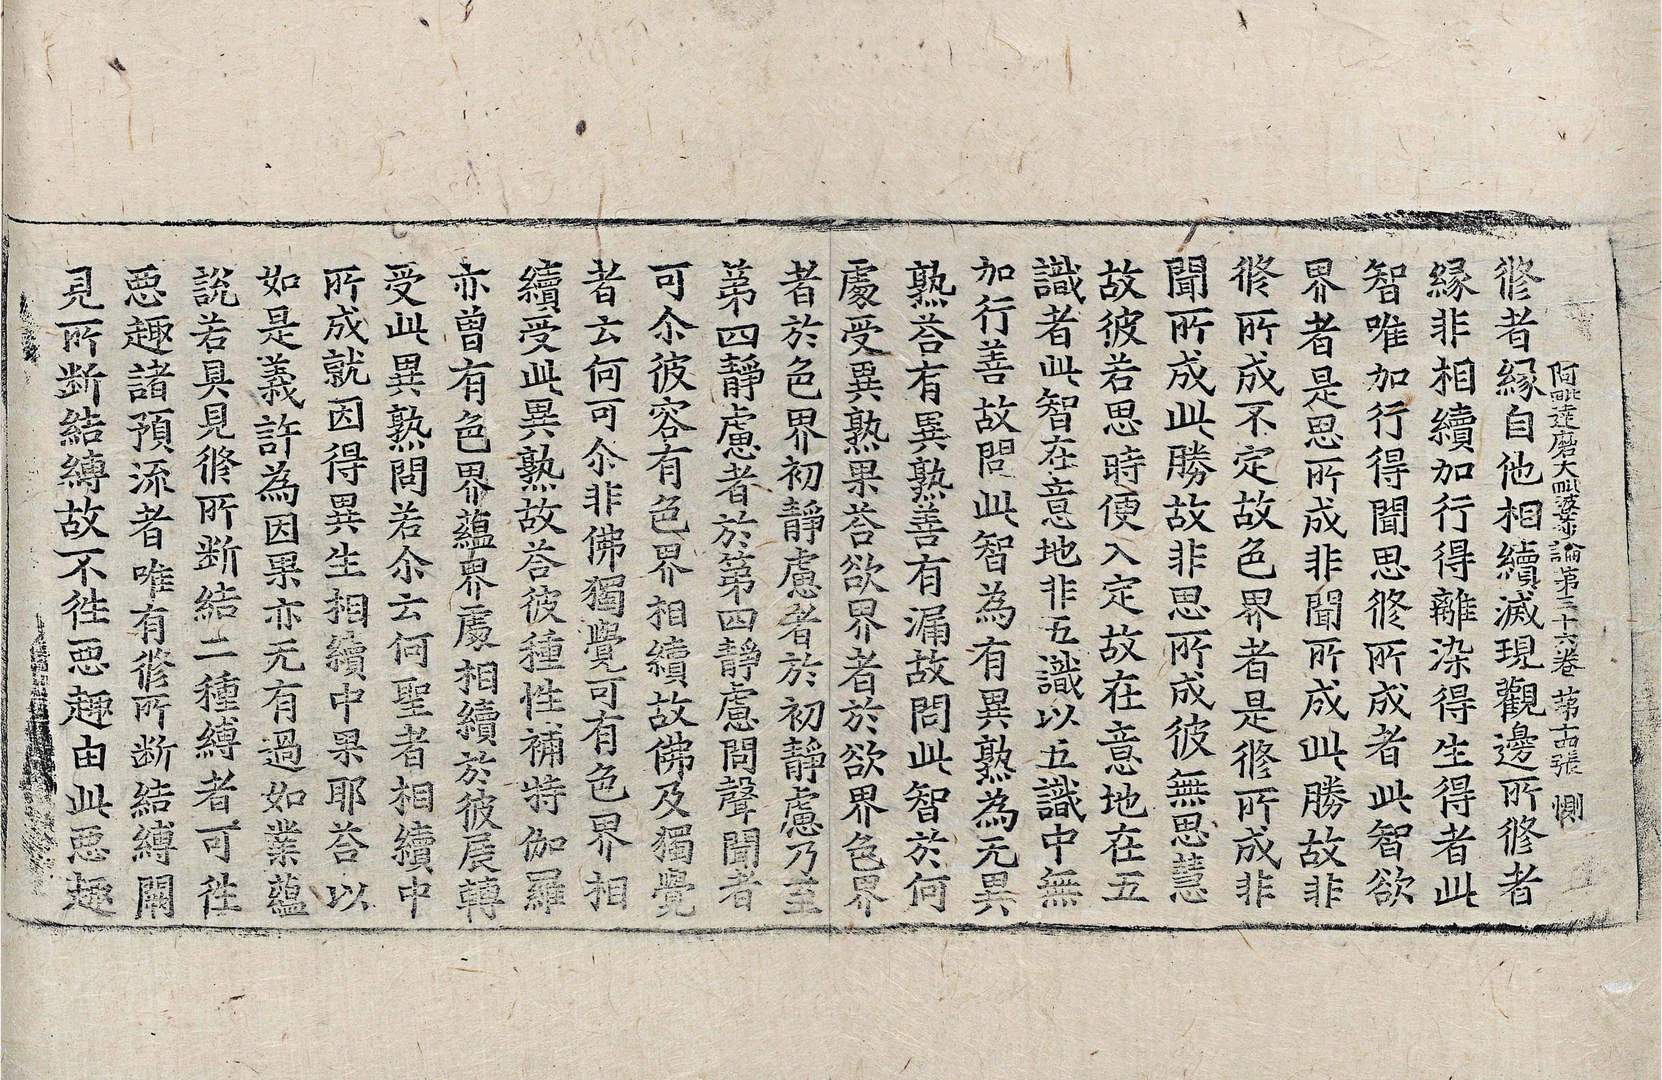 阿毗達磨大毗婆沙論第三十六卷 第十四張 惻
修者緣自他相續滅現觀邊所修者
緣非相續加行得離染得生得者此
智唯加行得聞思修所成者此智欲
界者是思所成非聞所成此勝故非
修所成不定故色界者是修所成非
聞所成此勝故非思所成彼無思慧
故彼若思時便入定故在意地在五
識者此智在意地非五識以五識中無
加行善故問此智為有異熟為无異
熟荅有異熟善有漏故問此智於何
處受異熟果荅欲界者於欲界色界
者於色界初靜慮者於初靜慮乃至
第四靜慮者於第四靜慮問聲聞者
可尒彼容有色界相續故佛及獨覺
者云何可尒非佛獨覺可有色界相
續受此異熟故荅彼種性補特伽羅
亦曾有色界蘊界處相續於彼展轉
受此異熟問若尒云何聖者相續中
所成就因得異生相續中果耶荅以
如是義許為因果亦无有過如業蘊
說若具見修所斷結二種縛者可徃
惡趣諸預流者唯有修所斷結縛闕
見所斷結縛故不徃惡趣由此惡趣